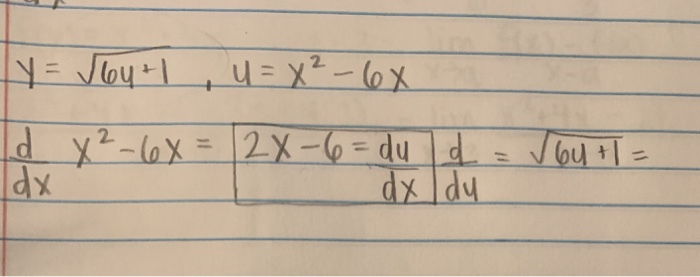 y = √6u+1 , u = x² - 6x
d/dx x² - 6x = 2x - 6 = du/dx d/du = √6u+1 =